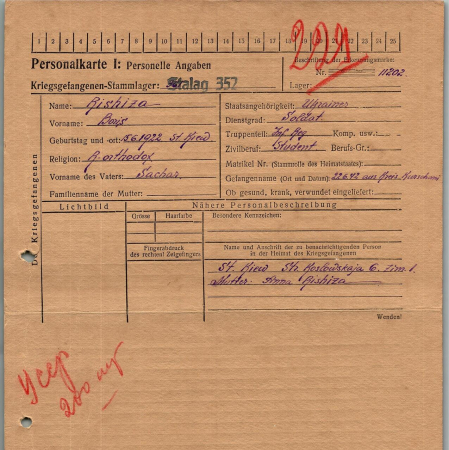 1 2 3 4 5 6 7 8 9 10 11 12 13 14 15 16 17 18 19 20 21 22 23 24 25
Personalkarte I: Personelle Angaben
Beschriftung der Erkennungsmarke
Nr. 11202
Kriegsgefangenen-Stammlager: Stalag 352
Lager:
Des Kriegsgefangenen
Name: Rishiza
Vorname: Boris
Geburtstag und -ort: 5.6.1922 St. Kiew
Religion: R. orthodox
Vorname des Vaters: Sachar
Familienname der Mutter:
Staatsangehörigkeit: Ukrainer
Dienstgrad: Soldat
Truppenteil: Inf. Reg Komp. usw.:
Zivilberuf: Student Berufs-Gr.:
Matrikel Nr. (Stammrolle des Heimatstaates):
Gefangennahme (Ort und Datum): 22.6.42
Ob gesund, krank, verwundet eingeliefert:
Lichtbild
Nähere Personalbeschreibung
Grösse Haarfarbe
Besondere Kennzeichen:
Fingerabdruck
des rechten! Zeigefingers
Name und Anschrift der zu benachrichtigenden Person
in der Heimat des Kriegsgefangenen
St. Kiew Str. Koslowskaja 6
Mutter Anna Rishiza
Wenden!
200